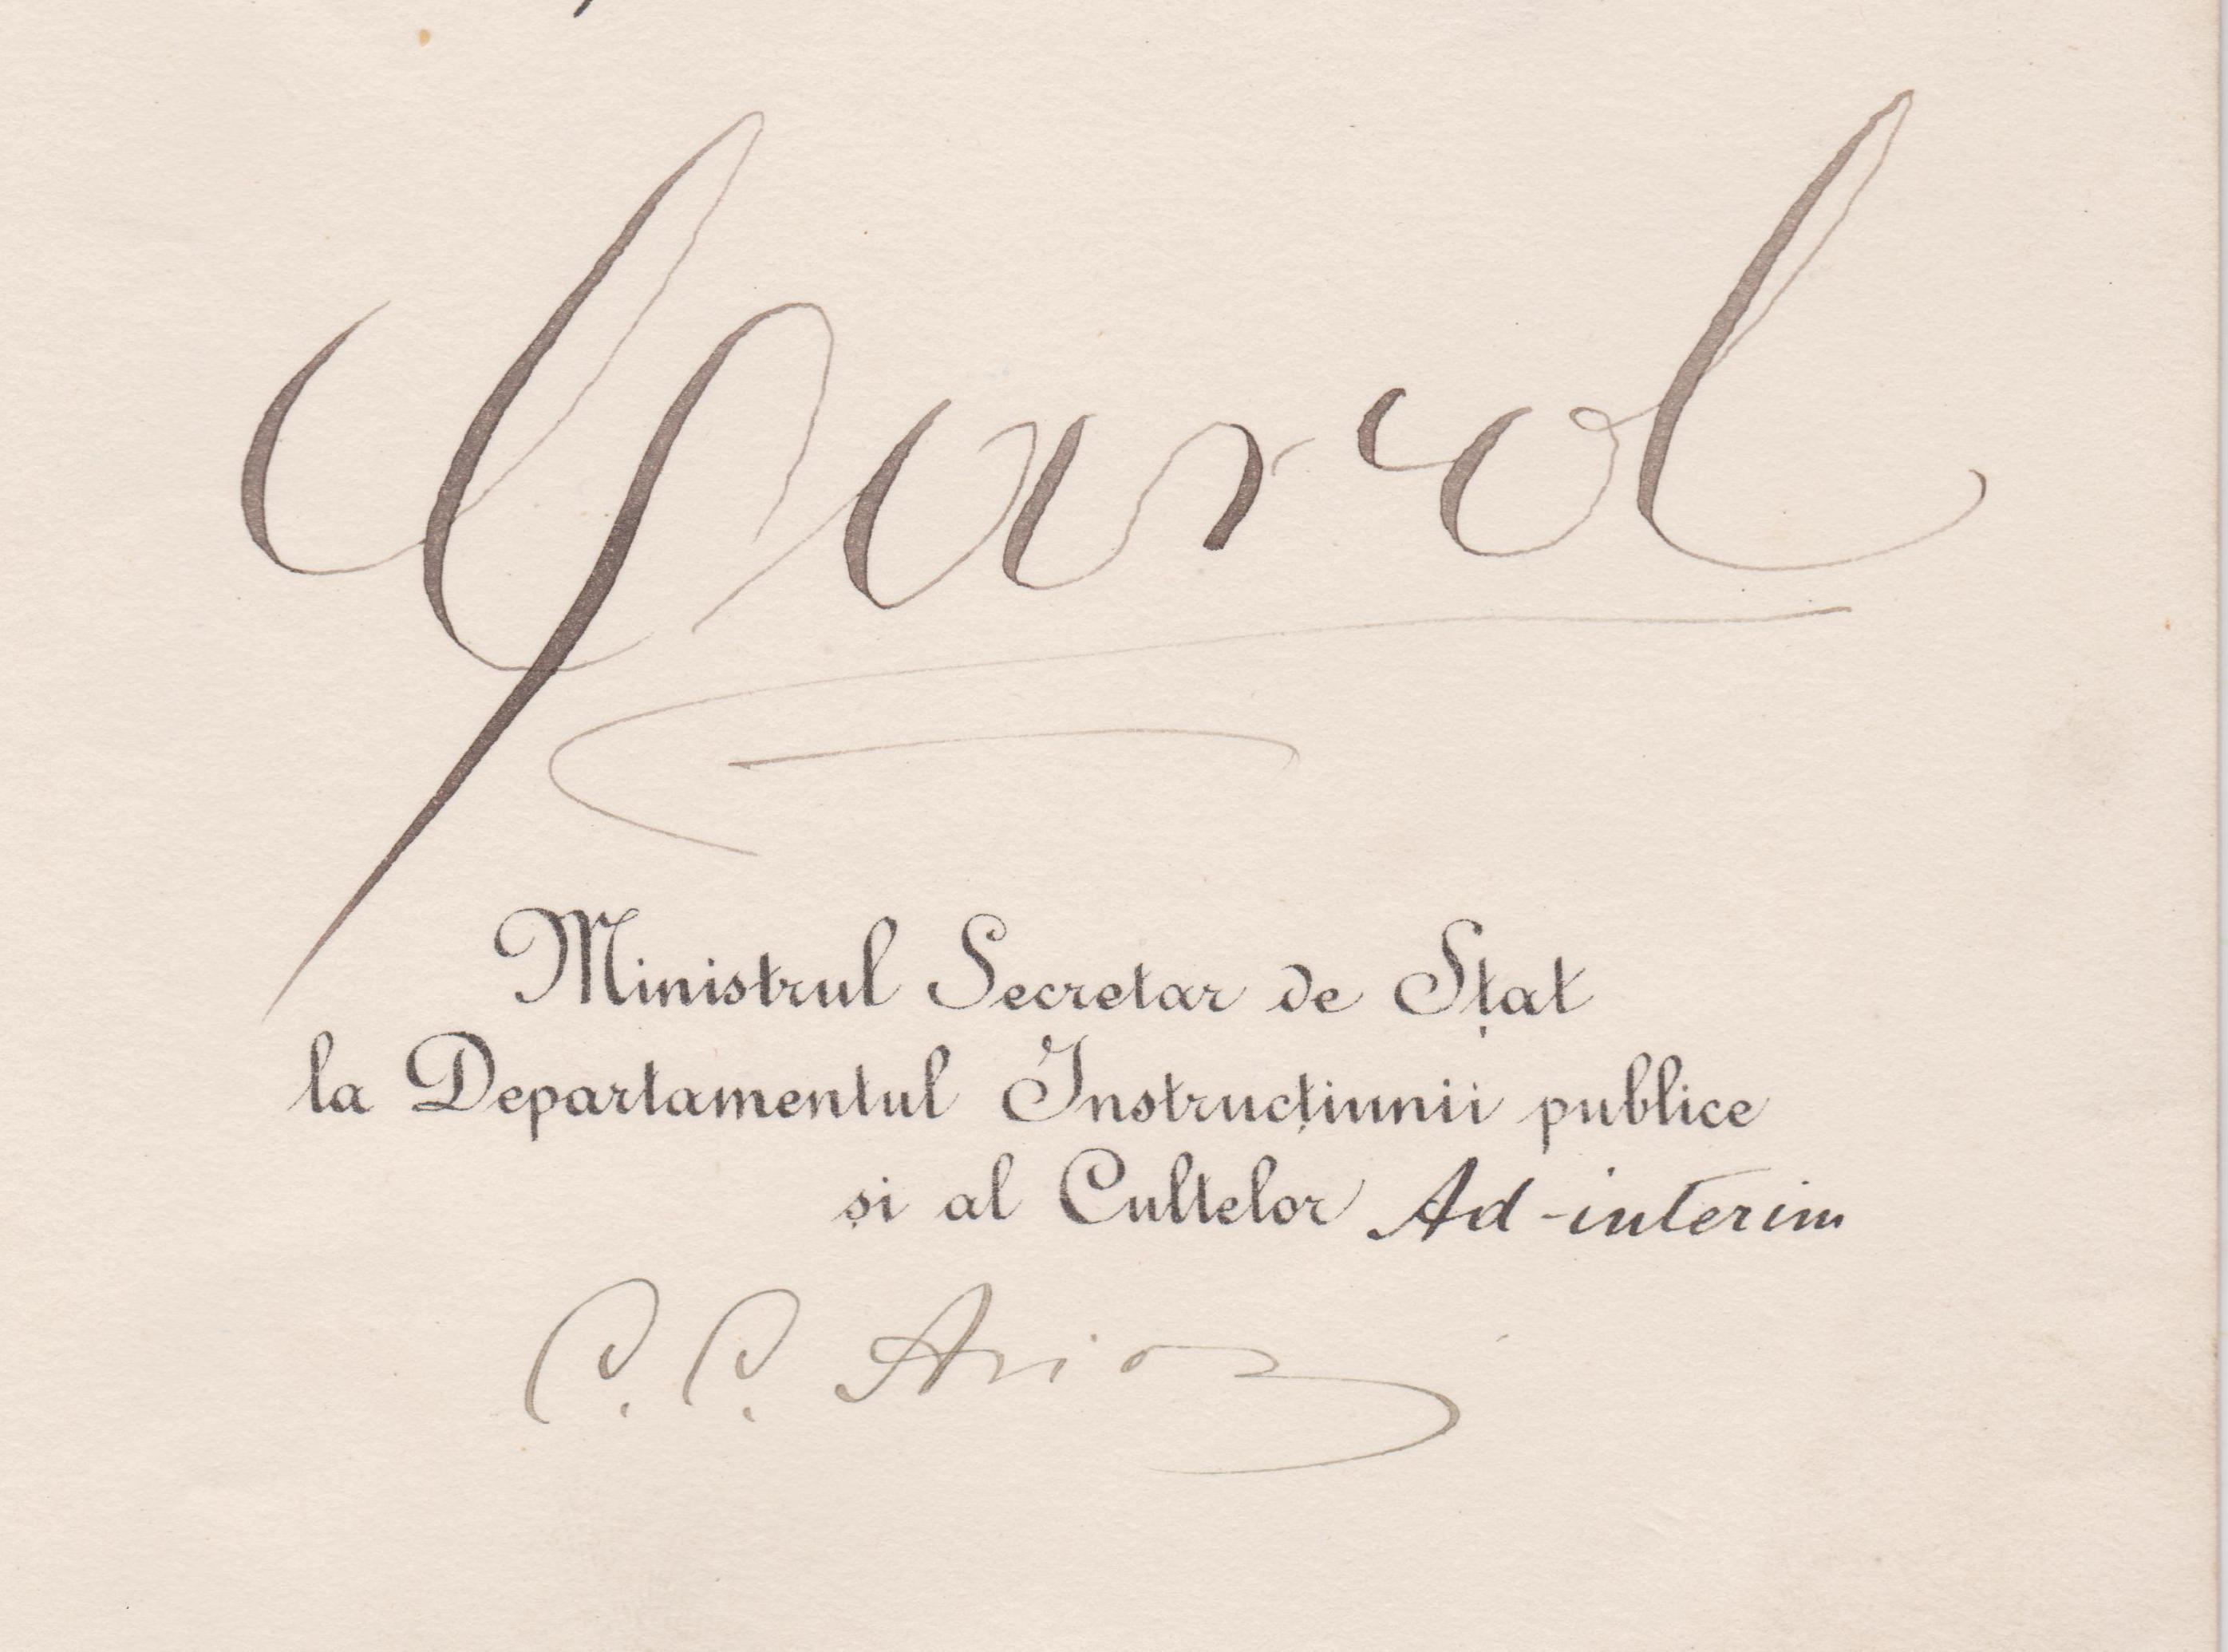 Carol
Ministrul Secretar de Stat
la Departamentul Instrucțiunii publice
și al Cultelor Ad-interim
C. C. Arion